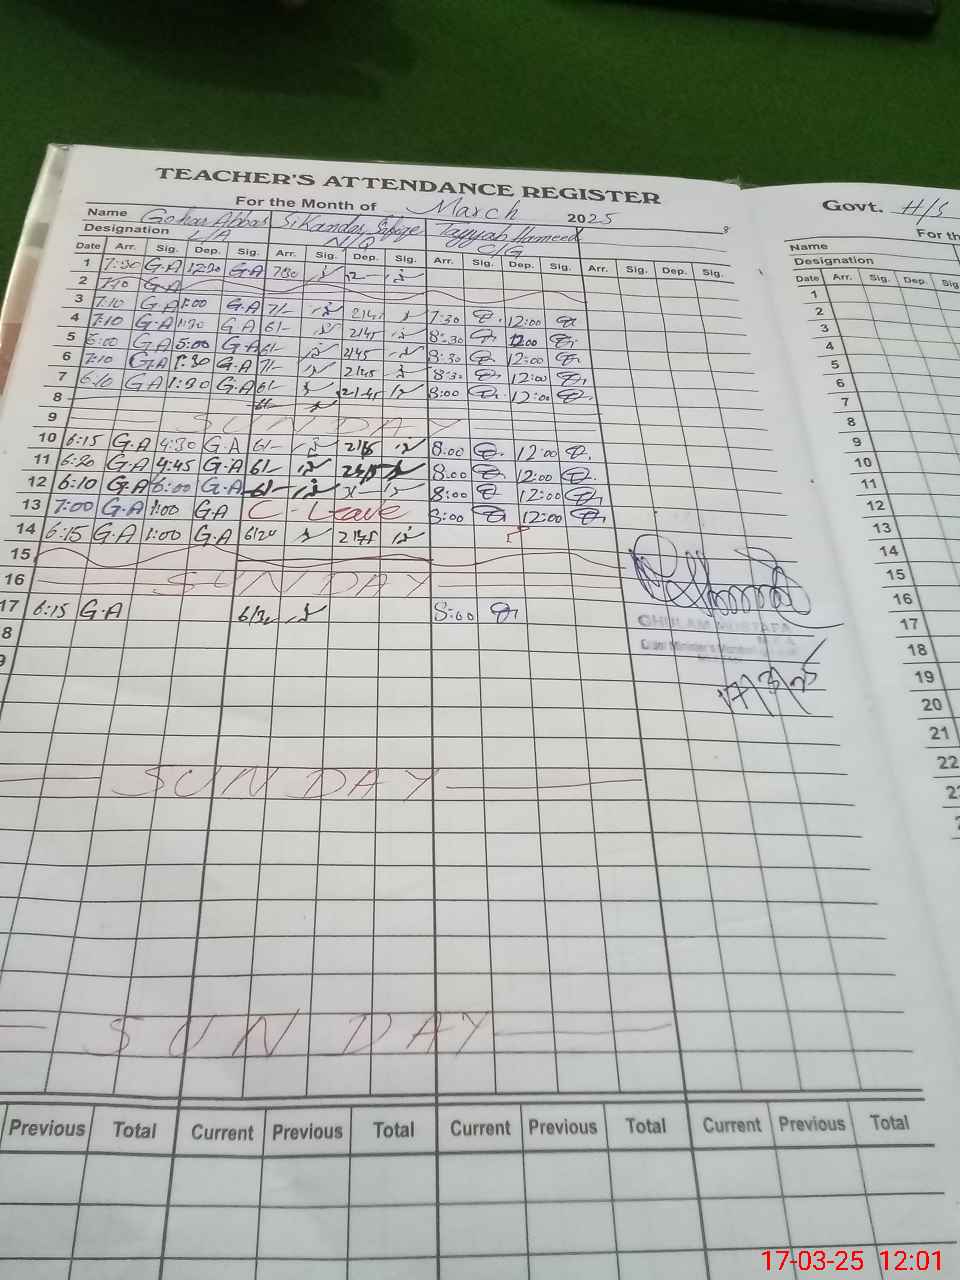 TEACHER'S ATTENDANCE REGISTER
For the Month of March 2025
Name Gohar Abbas Sikandar Tayyab Hameed
Designation L/A N/Q C/G
Date Arr. Sig. Dep. Sig. Arr. Sig. Dep. Sig. Arr. Sig. Dep. Sig. Arr. Sig. Dep. Sig.
1 7:30 G.A 12:30 G.A 7:30
2 7:10 G.A
3 7:10 G.A 1:00 G.A 7/- 2145 7:30 12:00
4 7:10 G.A 1:30 G.A 6/- 2145 8:30 12:00
5 6:00 G.A 5:00 G.A 6/- 2145 8:30 12:00
6 7:10 G.A 1:30 G.A 7/- 2145 8:30 12:00
7 6:10 G.A 1:30 G.A 6/- 2145 8:00 12:00
8 6/-
9 SUNDAY
10 6:15 G.A 4:30 G.A 6/- 2145 8:00 12:00
11 6:20 G.A 4:45 G.A 6/- 2145 8:00 12:00
12 6:10 G.A 6:00 G.A 6/- 8:00 12:00
13 7:00 G.A 1:00 G.A C-Leave 8:00 12:00
14 6:15 G.A 1:00 G.A 6120 2145
15
16 SUNDAY
17 6:15 G.A 6/30 8:00
8
9
GHULAM MUSTAFA
M.E.A
17/3/25
SUNDAY
SUNDAY
Previous Total Current Previous Total Current Previous Total Current Previous Total
Govt. H/S
For th
Name
Designation
Date Arr. Sig. Dep. Sig
1
2
3
4
5
6
7
8
9
10
11
12
13
14
15
16
17
18
19
20
21
22
17-03-25 12:01